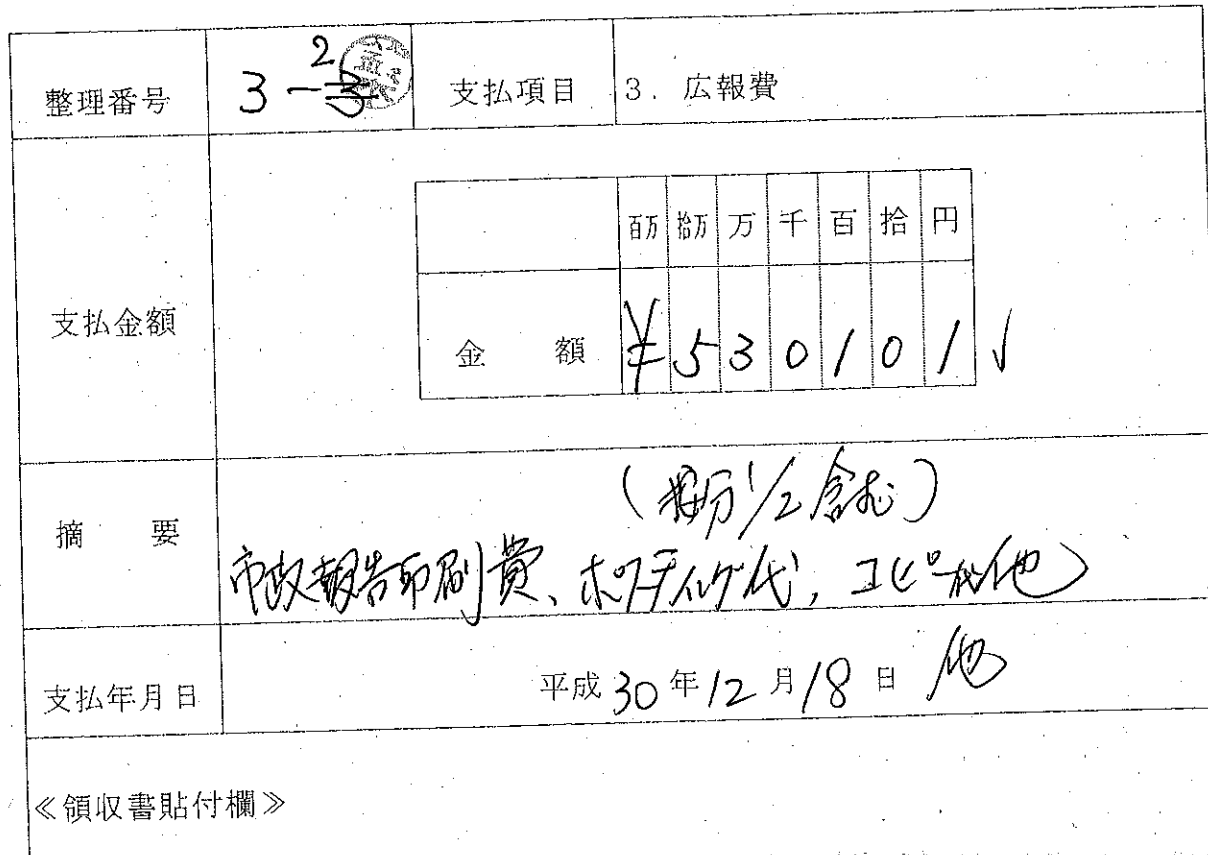 整理番号 3-2 3 支払項目 3. 広報費
百万 拾万 万 千 百 拾 円
支払金額
金額 ¥530101
(按分1/2含む)
摘要
市政報告印刷費、ポスティング代, コピー代他
支払年月日 平成30年12月18日 他
≪領収書貼付欄≫